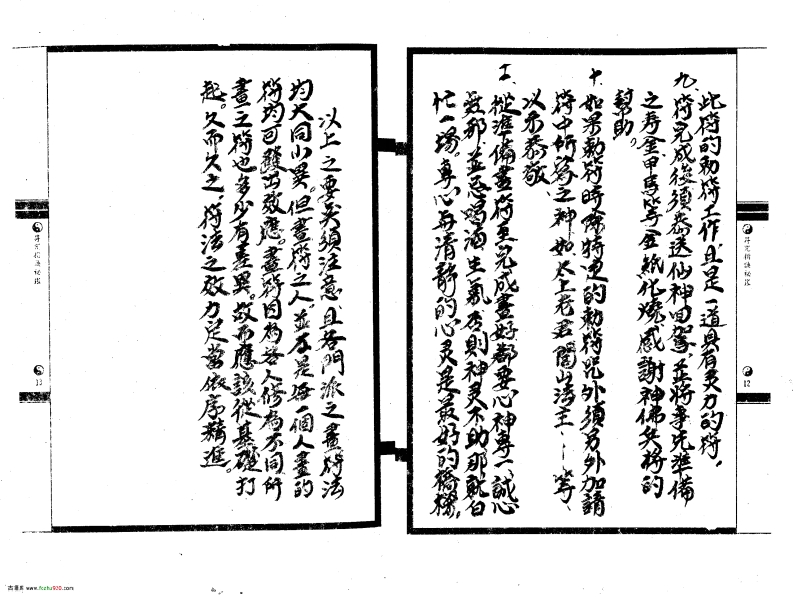 此符的勅符工作且是一道具有灵力的符，
九、符完成後須恭送仙神回駕，並將事先準備
之寿金、甲馬等金紙化燒，感謝神佛兵將的
幫助。
十、如果勅符時除特定的勅符咒外須另外加請
符中所寫之神如太上老君、閭山法主……等，
以示恭敬、
土、從準備畫符至完成畫好都要心神專一、誠心
無邪、並忌喝酒生氣否則神灵不助那就白
忙一場。專心与清靜的心灵是最好的橋樑。
12
以上之要点須注意、且各門派之畫符法
均大同小異。但畫符之人、並不是每一個人畫的
符均可發出效應。畫符因為各人修為不同所
畫之符也多少有差異。故而應該從基礎打
起。久而久之、符法之效力足當依序精進。
13
古漢库 www.fozhu920.com